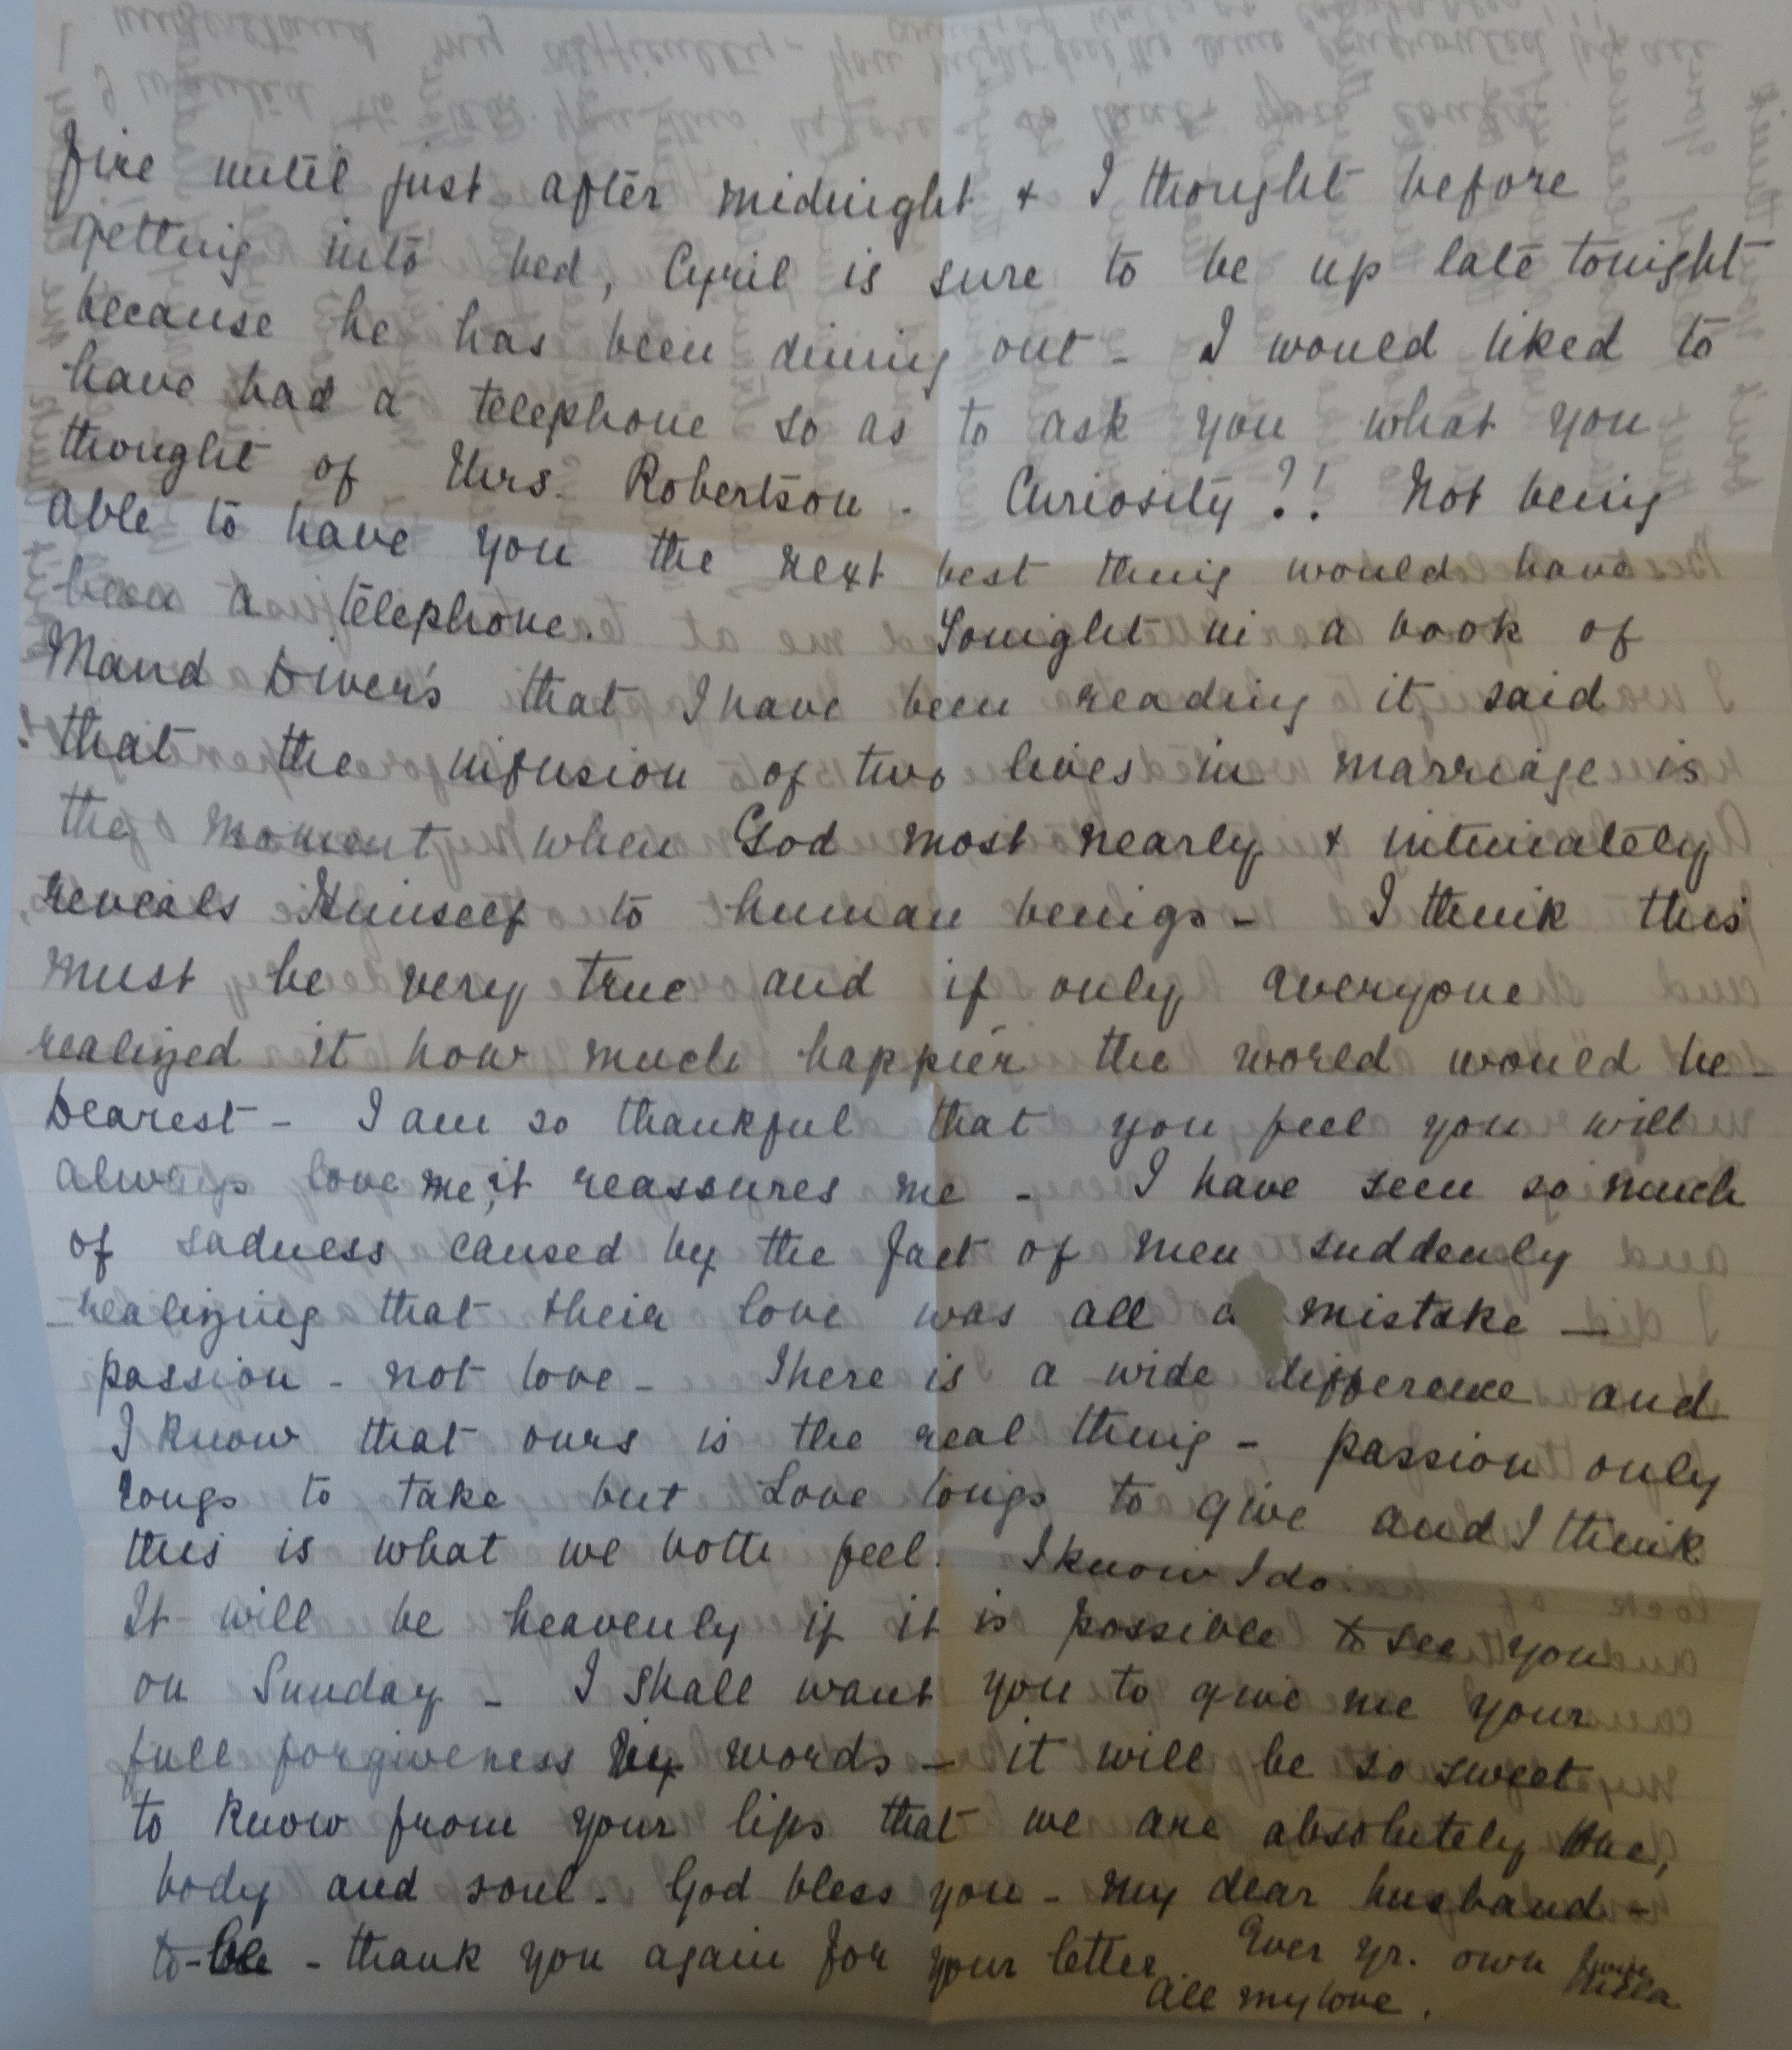 fire until just after midnight + I thought before
getting into bed, Cyril is sure to be up late tonight
because he has been dining out - I would liked to
have had a telephone so as to ask you what you
thought of Mrs. Robertson. Curiosity?! Not being
able to have you the next best thing would have
been a telephone. Tonight in a book of
Maud Diver's that I have been reading it said
that the infusion of two lives in marriage is
the moment when God most nearly + intimately
reveals Himself to human beings - I think this
must be very true and if only everyone
realized it how much happier the world would be -
Dearest - I am so thankful that you feel you will
always love me, it reassures me - I have seen so much
of sadness caused by the fact of men suddenly
realizing that their love was all a mistake -
passion - not love - There is a wide difference and
I know that ours is the real thing - passion only
longs to take but Love longs to give and I think
this is what we both feel. I know I do
It will be heavenly if it is possible to see you
on Sunday - I shall want you to give me your
full forgiveness in words - it will be so sweet
to know from your lips that we are absolutely one,
body and soul. God bless you - my dear husband -
to-be - thank you again for your letter. Ever yr. own
All my love.